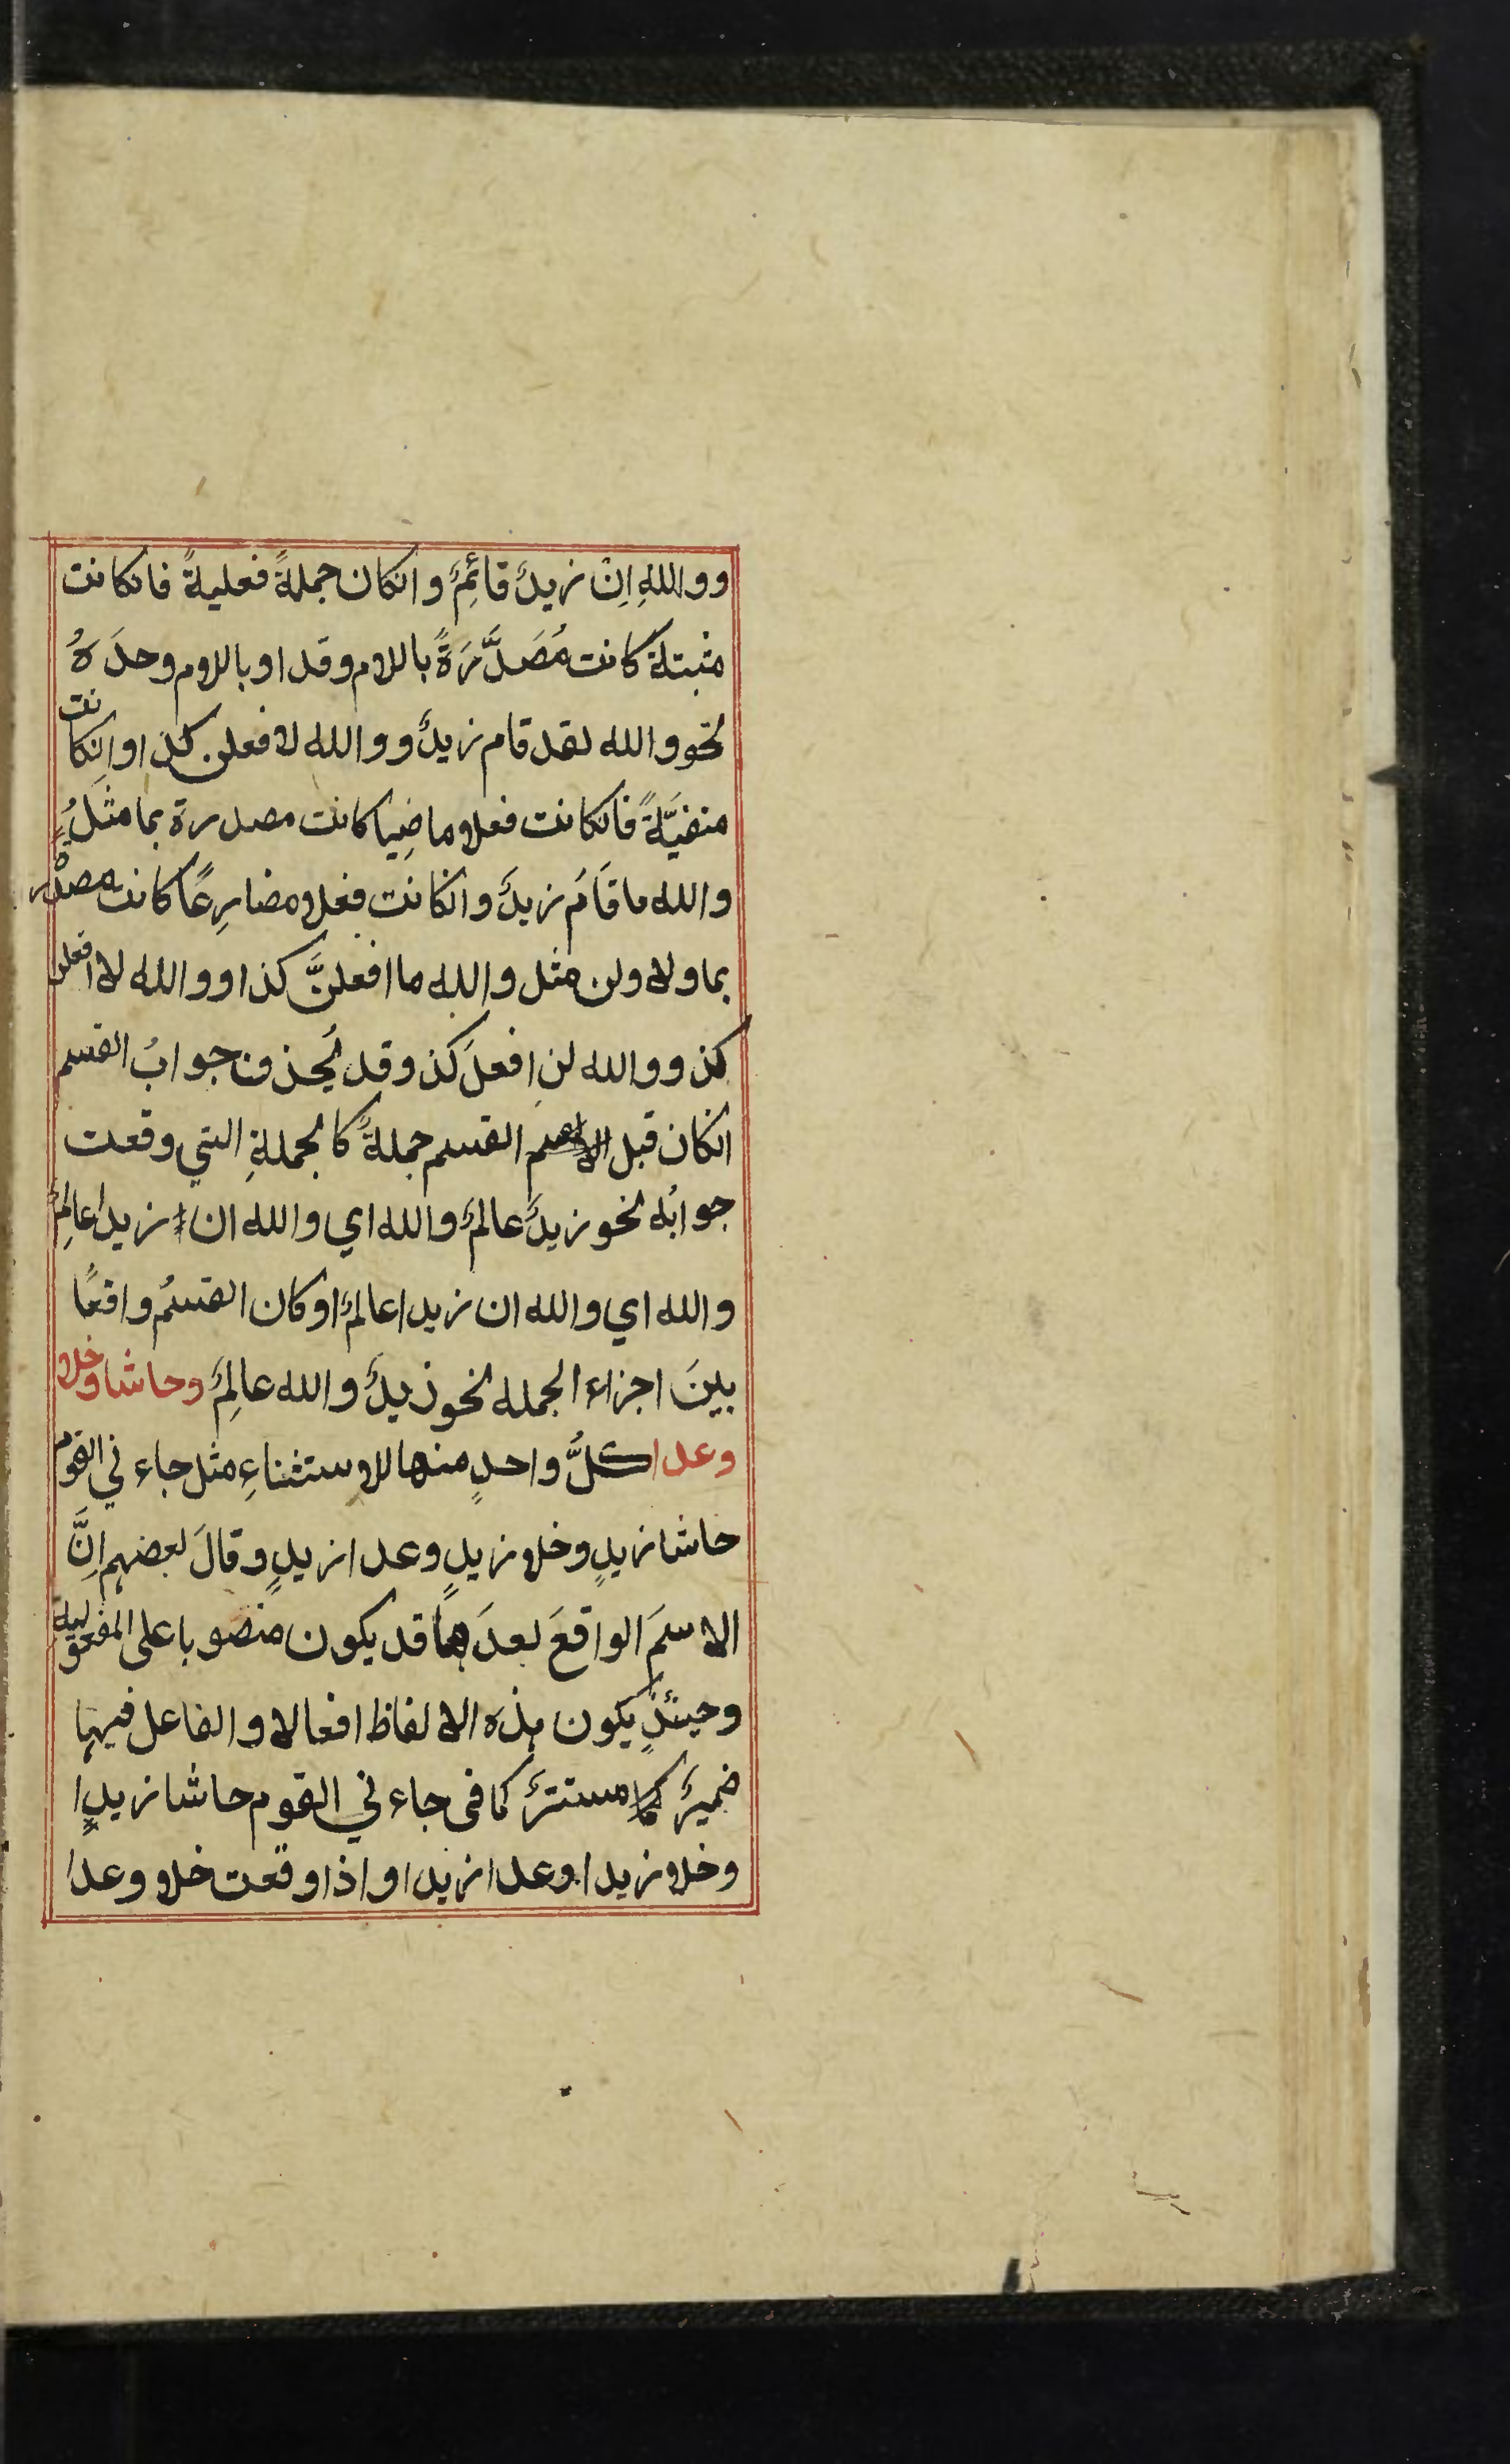 ووالله اِنْ زيدٌ قائمٌ وانكان جملةً فعليةً فانكانت
مثبتة كانت مُصَدَّرَةً باللام وقد او باللام وحدَهُ
نحو والله لقد قام زيدٌ ووالله لافعلن كذا وانكانت
منفيَّةً فانكانت فعلا ماضِيا كانت مصدرة بما مثلُ
والله ما قَامَ زيدٌ وانكانت فعلا مضارِعًا كانت مصدر
بما ولا ولن مثل والله ما افعلنَّ كذا ووالله لا افعلن
كذ ووالله لن افعلَ كذ وقد يُحذف جوابُ القسم
انكان قبل القسم جملةً كالجملةِ التي وقعت
جوابُه نحو زيدٌ عالمٌ والله اي والله ان زيدا عالِمٌ
والله اي والله ان زيدا عالمٌ او كان القسمُ واقعًا
بينَ اجزاء الجمله نحو زيدٌ والله عالِمٌ وحاشا وخلا
وعدا كلُّ واحدٍ منها للاستثناءِ مثل جاءني القوم
حاشا زيدٍ وخلا زيدٍ وعدا زيدٍ وقالَ بعضهم اِنَّ
الاسمَ الواقعَ بعدَهما قد يكون منصوبا على المفعولية
وحينئذٍ يكون هذه الالفاظ افعالا والفاعل فيها
ضميرٌ مستترٌ كما فى جاءني القوم حاشا زيدا
وخلا زيدا وعدا زيدا واذا وقعت خلا وعدا